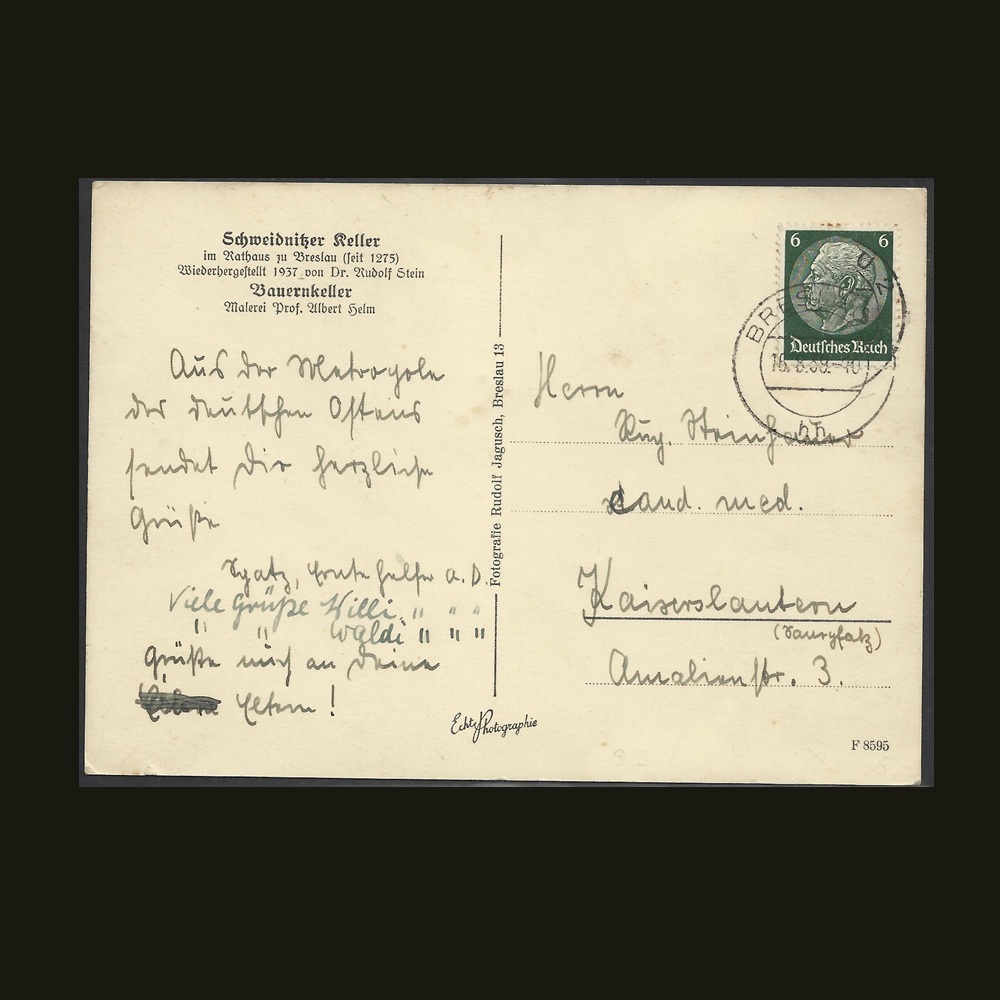 Schweidnitzer Keller
im Rathaus zu Breslau (seit 1275)
Wiederhergestellt 1937 von Dr. Rudolf Stein
Bauernkeller
Malerei Prof. Albert Helm
Aus der Metropole
des deutschen Ostens
sendet Dir herzliche
Grüße
Spatz, Erntehelfer a. D.
Viele Grüße Willi " " "
" " Waldi " " "
Grüße mich an Deine
Eltern!
Fotografie Rudolf Jagusch, Breslau 13
Echte Photographie
6 6
Deutsches Reich
BRESLAU 2
16.8.39.-10
hh
Herrn
Rug. Steinhauer
cand. med.
Kaiserslautern
(Saarpfalz)
Amalienstr. 3.
F 8595